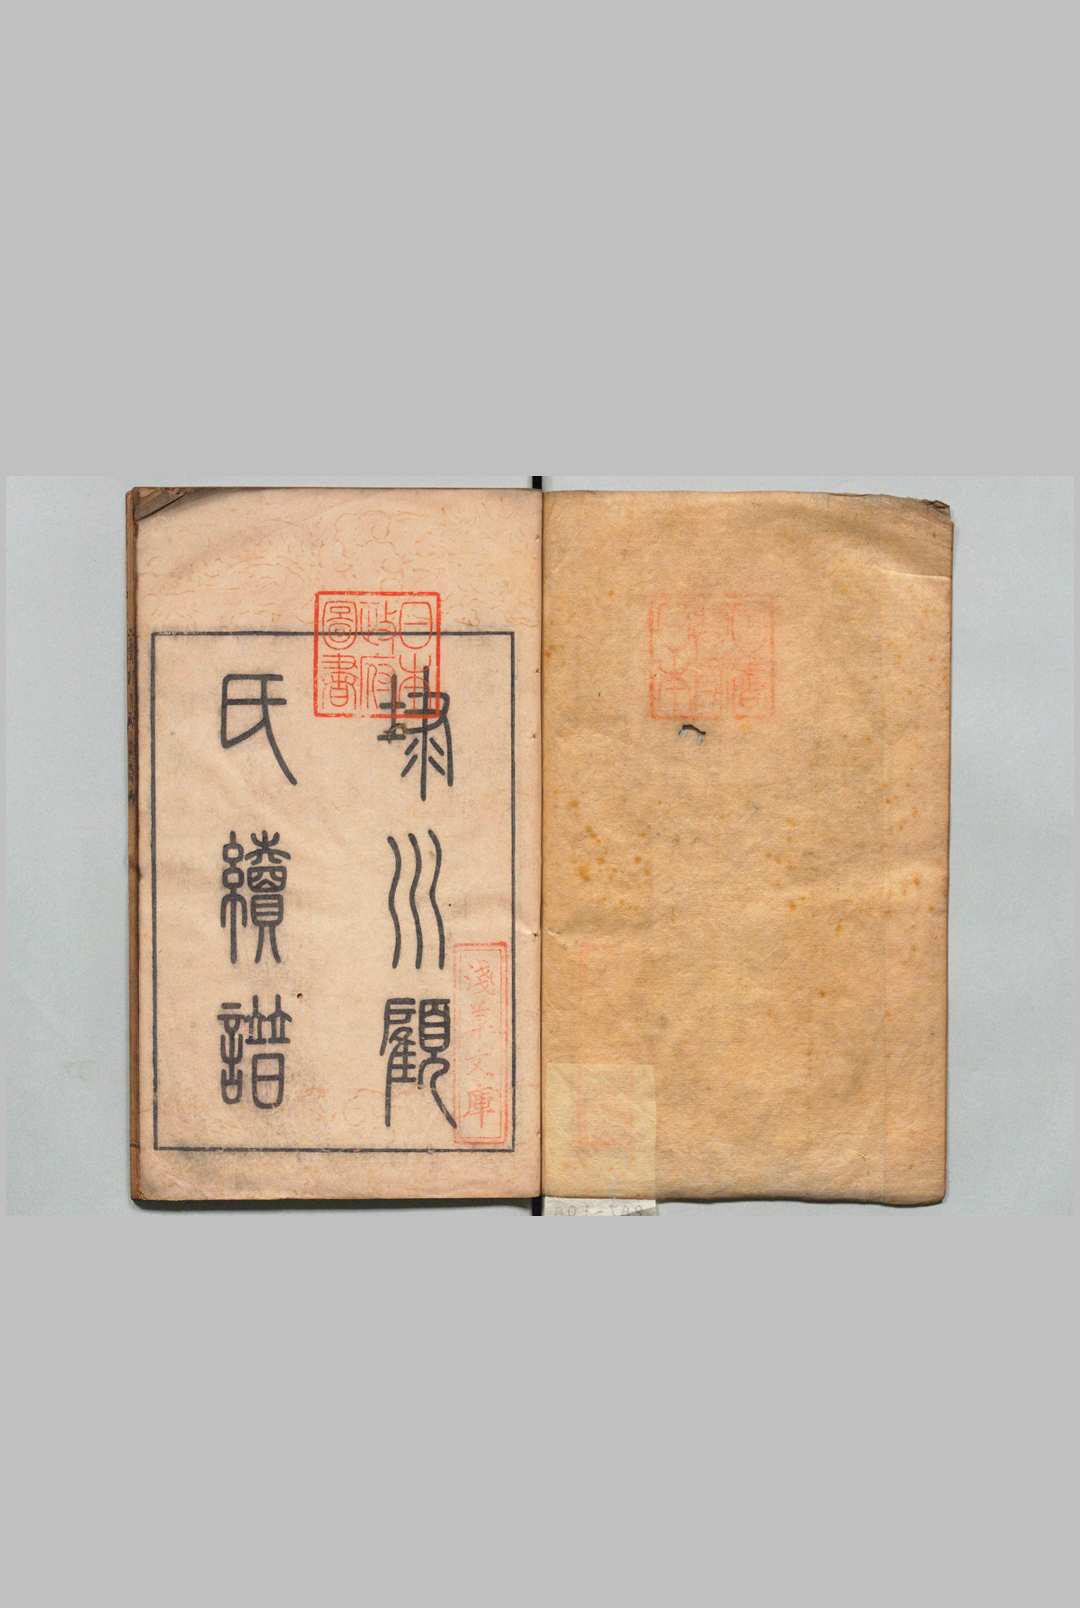 埭川顧
氏續譜
日本
政府
圖書
淺草文庫